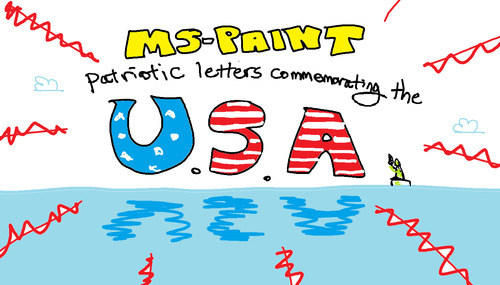 MS-PAINT
patriotic letters commemorating the
U.S.A.